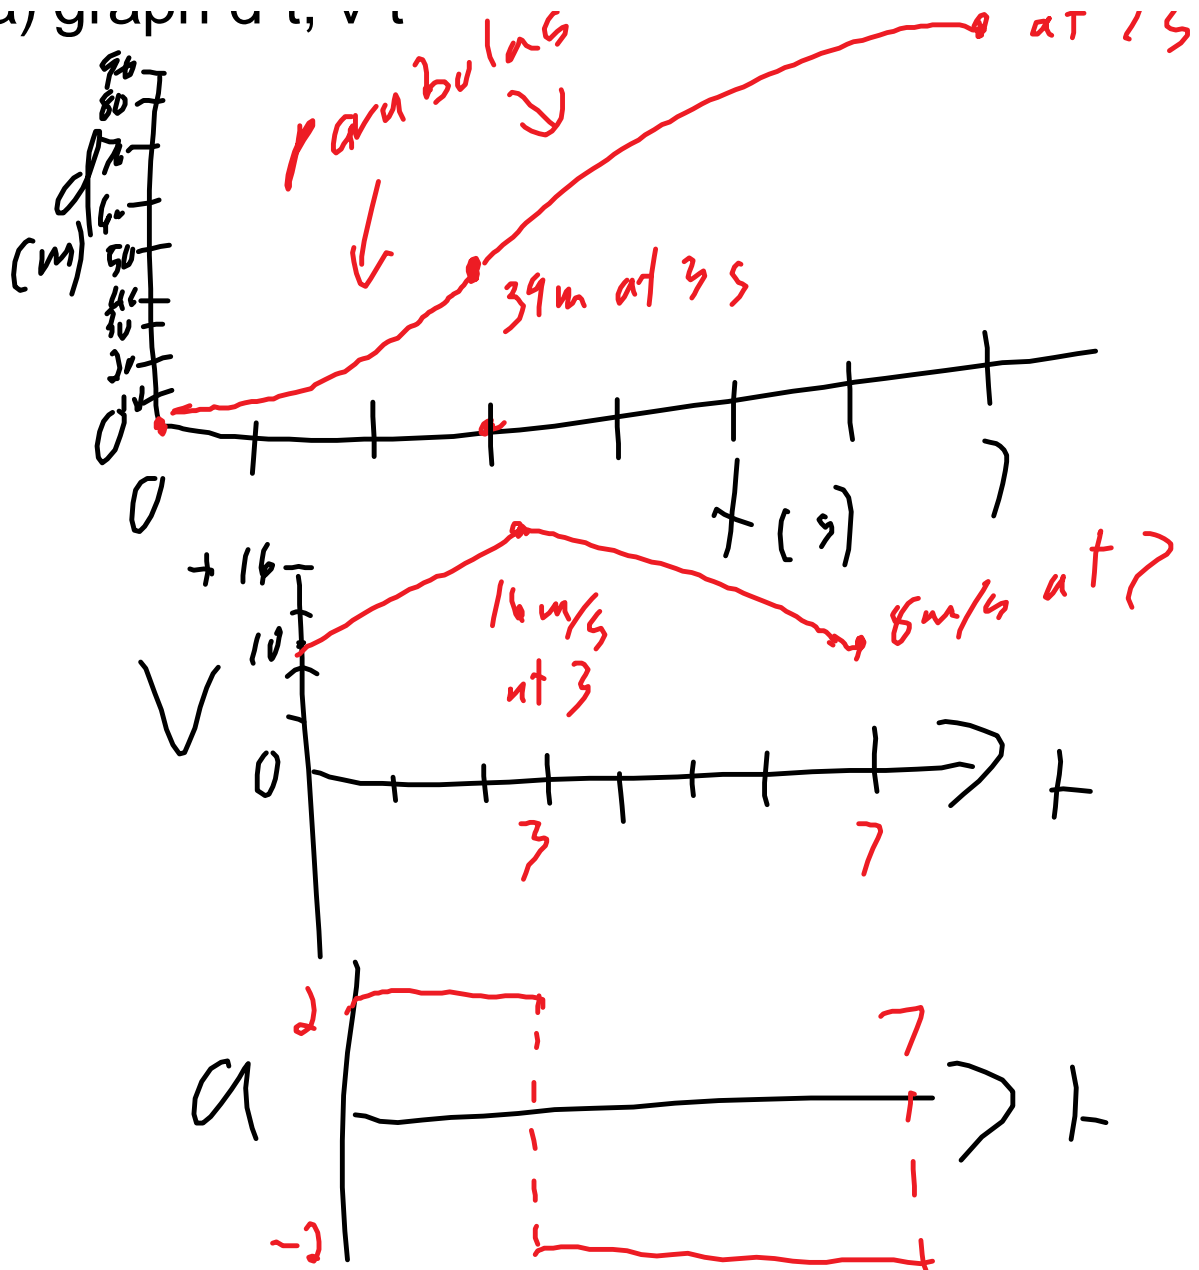 a) graph d-t, v-t
parabolas
at 7 s
90
80
70
60
50
40
30
20
10
0
d
(m)
39m at 3 s
0
7
t (s)
+ 16
10
0
V
16 m/s
at 3
8m/s at 7
3
7
t
2
a
-2
7
t